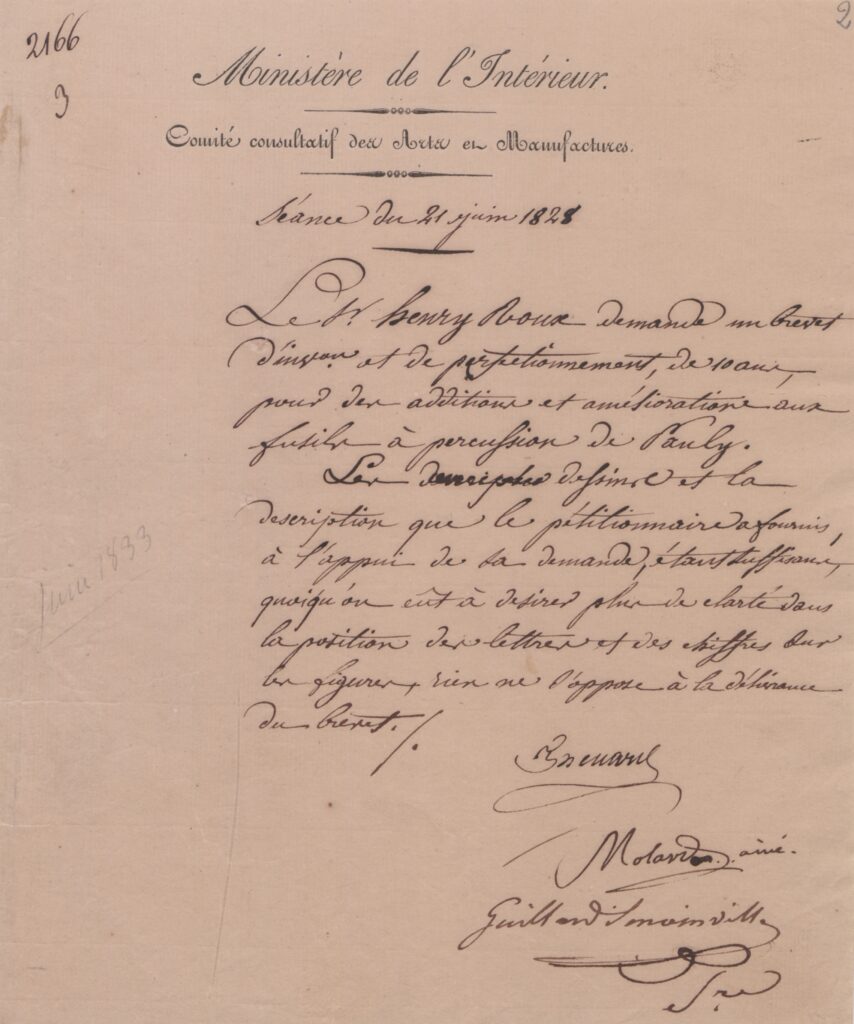 2166
3
2
Ministère de l'Intérieur.
Comité consultatif des Arts et Manufactures.
Séance du 21 juin 1828
Le Sr. henry Roux demande un brevet
d'invon. et de perfectionnement, de 10 ans,
pour des additions et améliorations aux
fusils à percussion de Pauly.
Les dessins et la
description que le pétitionnaire a fournis,
à l'appui de sa demande, étant suffisans,
quoiqu'on eût à desirer plus de clarté dans
la position des lettres et des chiffres sur
les figures, rien ne s'oppose à la délivrance
du brevet. /.
Juin 1833
Molard ainé.
Guillard Senainville
Sre